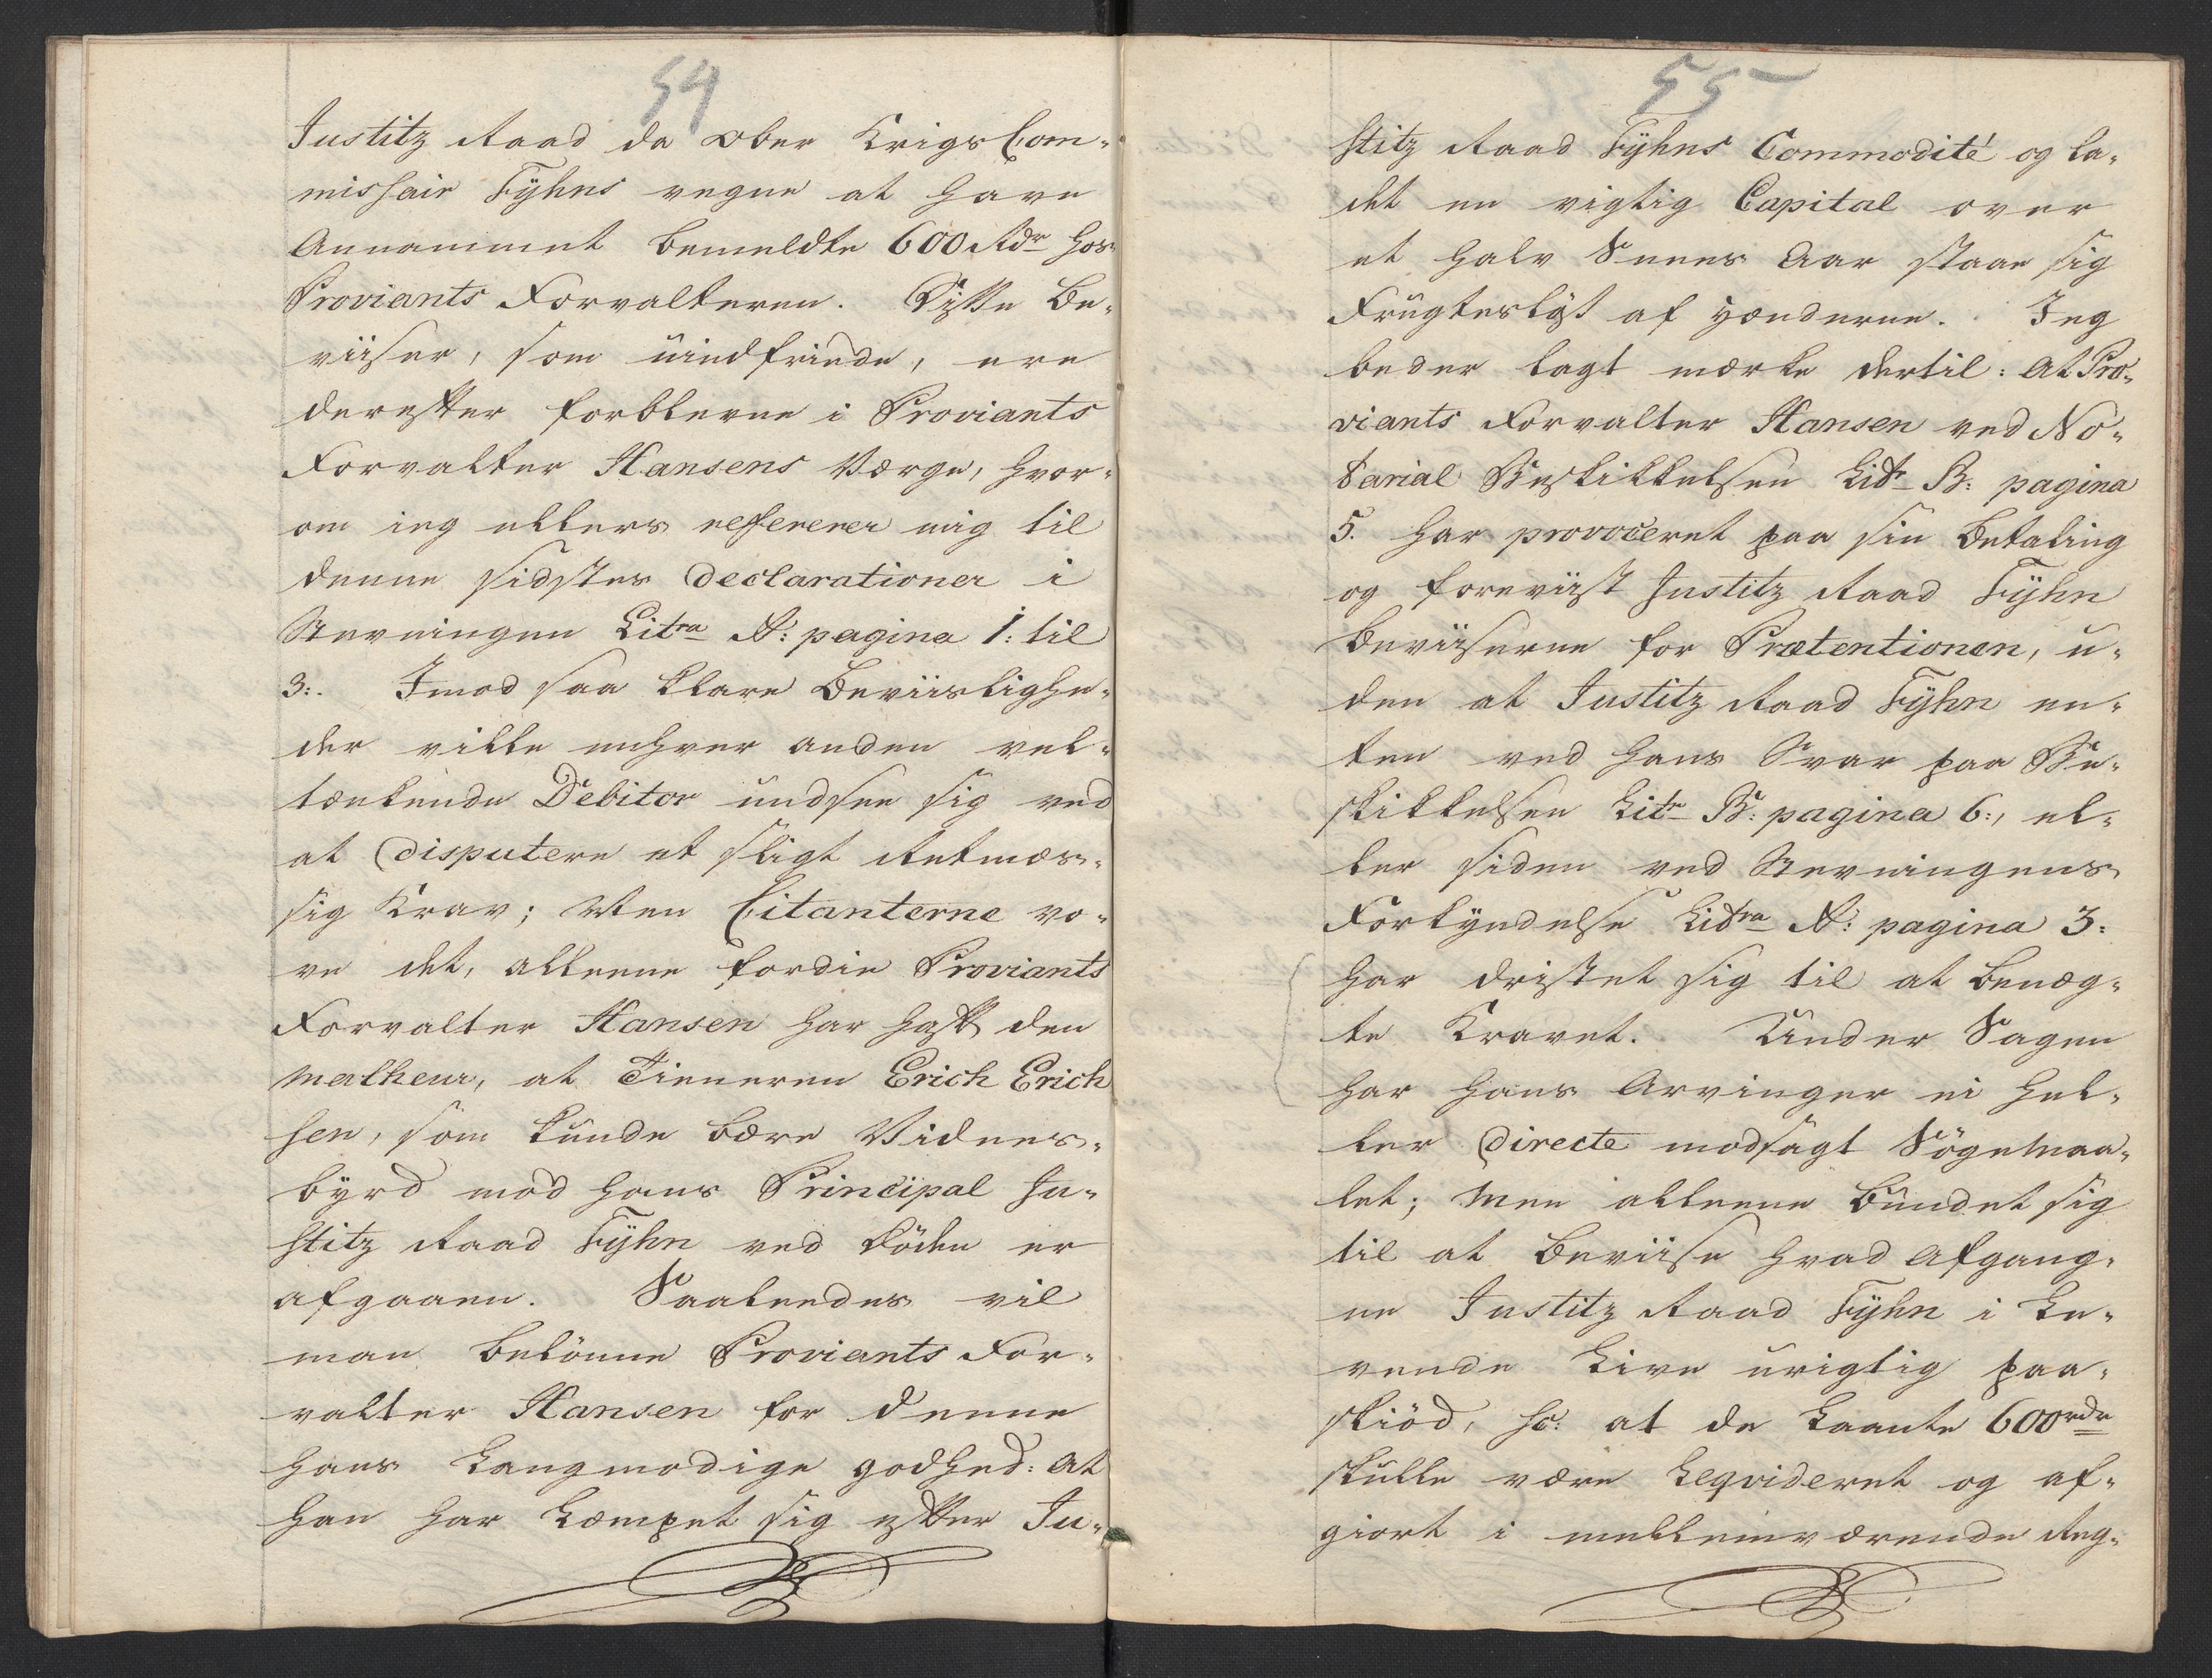 54
Justitz Raad da Ober Krigs Com-
missair Fÿhns vegne at have
Annammet bemeldte 600 Rdr hos
Proviants Forvalteren. Disse Be-
viiser, som uindfriede, ere
derefter forblevne i Proviants
Forvalter Hansens Værge, hvor-
om ieg ellers refererer mig til
denne sidstes Declarationer i
Stevningen Litra A: pagina 1: til
3:. Imod saa klare Beviislighe-
der ville enhver anden vel-
tænkende Debitor undsee sig ved
at disputere et sligt Retmæs-
sig Krav; Men Citanterne vo-
ve det, alleene fordie Proviants
Forvalter Hansen har haft den
Malheur, at Tieneren Erich Erich
sen, som kunde bære Vidnes-
byrd mod hans Principal Ju-
stitz Raad Fÿhn ved Døden er
afgaaen. Saaleedes vil
man belönne Proviants For-
valter Hansen for denne
hans Langmodige godhed: At
han har Læmpet sig efter Ju-
55
stitz Raad Fÿhns Commodité og la-
det en vigtig Capital over
et halv Snees Aar staae sig
Frugtesløst af Hænderne. Jeg
beder lagt mærke dertil: At Pro-
viants Forvalter Hansen ved No-
tarial Beskikkelsen Litr B: pagina
5. har provoceret paa sin Betaling
og foreviist Justitz Raad Fÿhn
Beviiserne for Prætentionen, u-
den at Justitz Raad Fÿhn en-
ten ved hans Svar paa Be-
skikkelsen Litr B: pagina 6:, el-
ler siden ved Stevningens
Forkÿndelse Litra A: pagina 3:
har dristet sig til at benæg-
te Kravet. Under Sagen
har hans Arvinger ei hel-
ler directe modsagt Søgemaa-
let; Men alleene bundet sig
til at Beviise hvad Afgang-
ne Justitz Raad Fÿhn i Le-
vende Live urigtig paa-
skiöd, sc: at de Laante 600rdr
skulle være Leqvideret og af-
giort i mellemværende Reg-